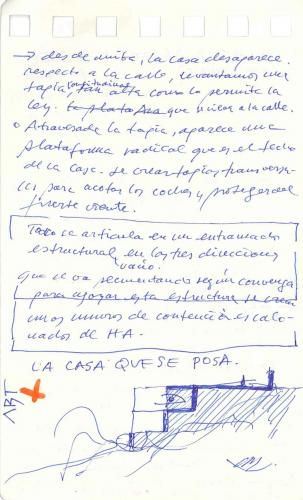 → desde arriba, la casa desaparece.
respecto a la calle, levantamos una
tapia, longitudinal tan alta como lo permita la
ley. la plataforma que mira a la calle.
o Atravesada la tapia, aparece una
plataforma radical que es el techo
de la casa. se crean tapias transversa-
les para acotar los coches y proteger del
fuerte viento.
Todo se articula en un entramado
estructural en las tres direcciones
vano.
que se va segmentando según convenga
para apoyar esta estructura se crean
unos muros de contención escalo-
nados de HA.
LA CASA QUE SE POSA.
ABT